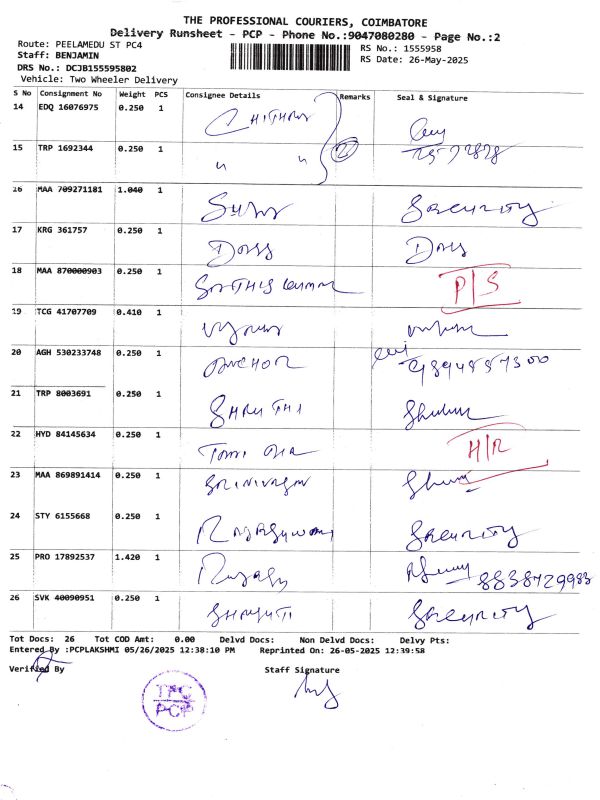 THE PROFESSIONAL COURIERS, COIMBATORE
Delivery Runsheet - PCP - Phone No.:9047080280 - Page No.:2
Route: PEELAMEDU ST PC4
RS No.: 1555958
Staff: BENJAMIN
RS Date: 26-May-2025
DRS No.: DCJB155595802
Vehicle: Two Wheeler Delivery
S No Consignment No Weight PCS Consignee Details Remarks Seal & Signature
14 EDQ 16076975 0.250 1
15 TRP 1692344 0.250 1 " " 2
16 MAA 709271181 1.040 1 Security
17 KRG 361757 0.250 1 Doss Doss
18 MAA 870000903 0.250 1 P/S
19 TCG 41707709 0.410 1
20 AGH 530233748 0.250 1 ANCHOR
21 TRP 8003691 0.250 1 SHRUTHI
22 HYD 84145634 0.250 1 H/R
23 MAA 869891414 0.250 1 SRINIVASAN
24 STY 6155668 0.250 1 Security
25 PRO 17892537 1.420 1 8838729983
26 SVK 40090951 0.250 1 Security
Tot Docs: 26 Tot COD Amt: 0.00 Delvd Docs: Non Delvd Docs: Delvy Pts:
Entered By :PCPLAKSHMI 05/26/2025 12:38:10 PM Reprinted On: 26-05-2025 12:39:58
Verified By Staff Signature
TPC
PCP